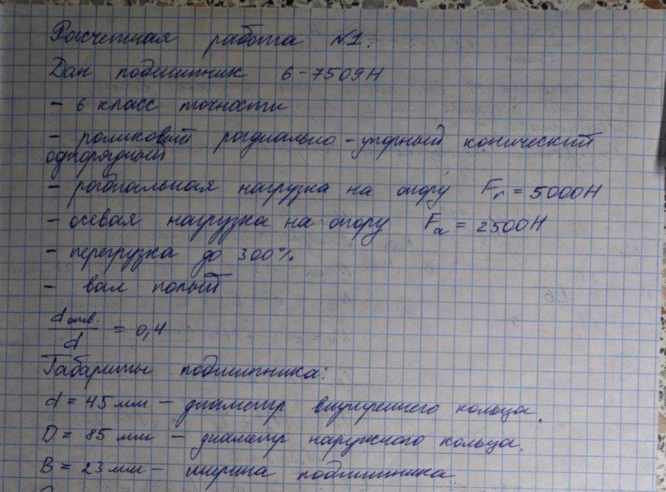 Расчетная работа №1.
Дан подшипник 6-7509Н
- 6 класс точности
- роликовый радиально-упорный конический
однорядный
- радиальная нагрузка на опору Fr = 5000Н
- осевая нагрузка на опору Fa = 2500Н
- перегрузка до 300%
- вал полый
dотв. / d = 0,4
Габариты подшипника:
d = 45 мм - диаметр внутреннего кольца.
D = 85 мм - диаметр наружного кольца.
B = 23 мм - ширина подшипника.